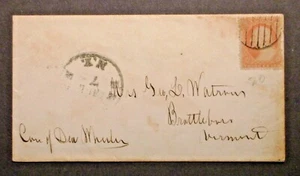 N.Y.
Mrs Geo. L. Watrous
Brattleboro
Vermont
Care of Dea. Wheeler